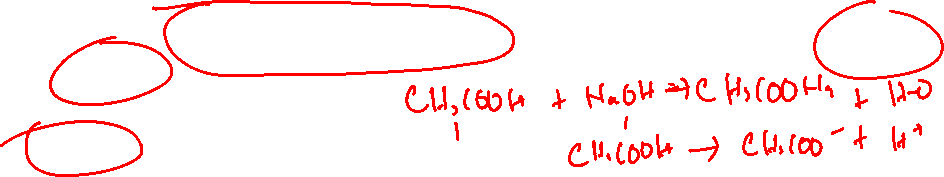 CH3COOH + NaOH → CH3COONa + H2O
CH3COOH → CH3COO⁻ + H⁺